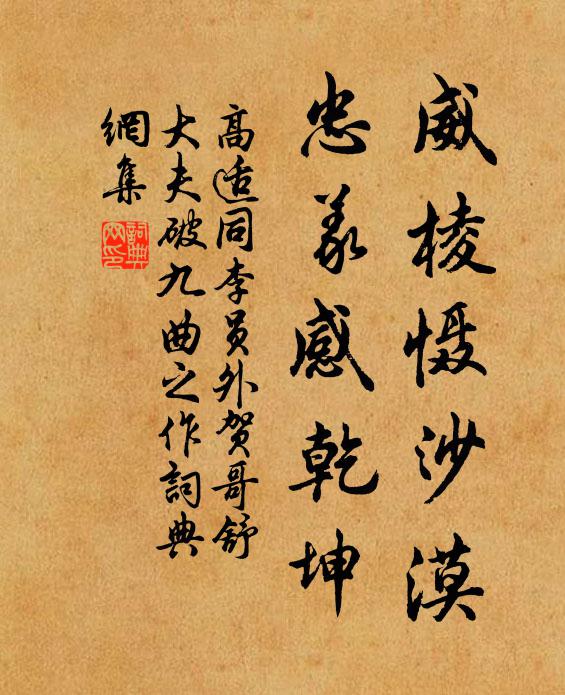 威棱慑沙漠
忠义感乾坤
高适同李员外贺哥舒
大夫破九曲之作词典
網集
詞典
网印